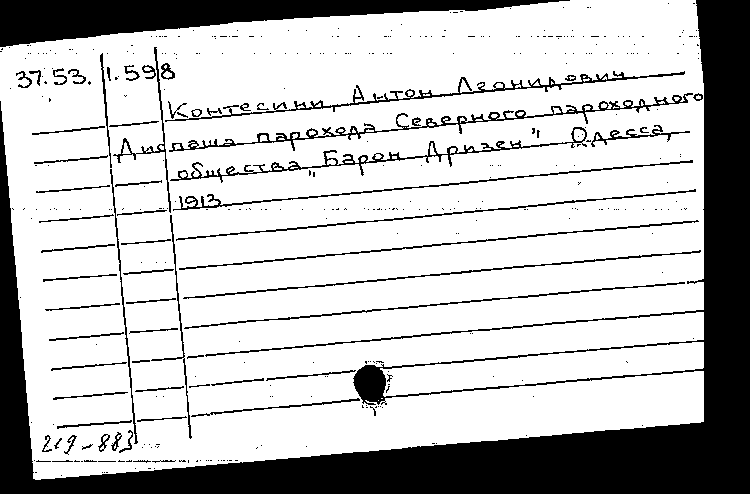 37.53. 1.598
Контесини, Антон Леонидович
Диспаша парохода Северного пароходного
общества „Барон Дризен" Одесса,
1913.
219-883